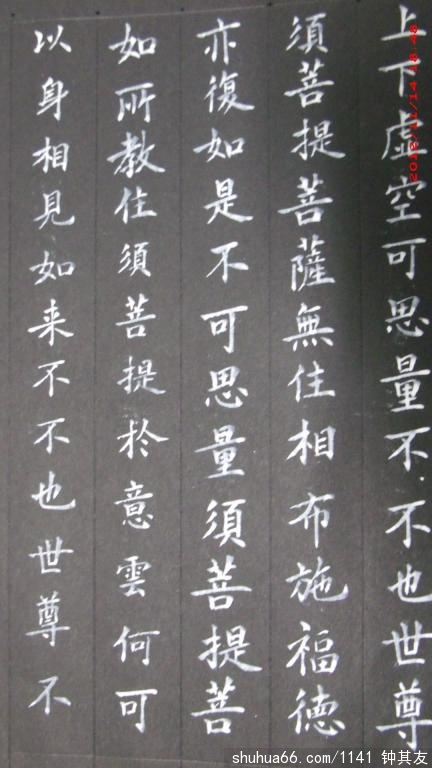 上下虛空可思量不不也世尊
須菩提菩薩無住相布施福德
亦復如是不可思量須菩提菩
如所教住須菩提於意雲何可
以身相見如来不不也世尊不
shuhua66.com/1141 钟其友